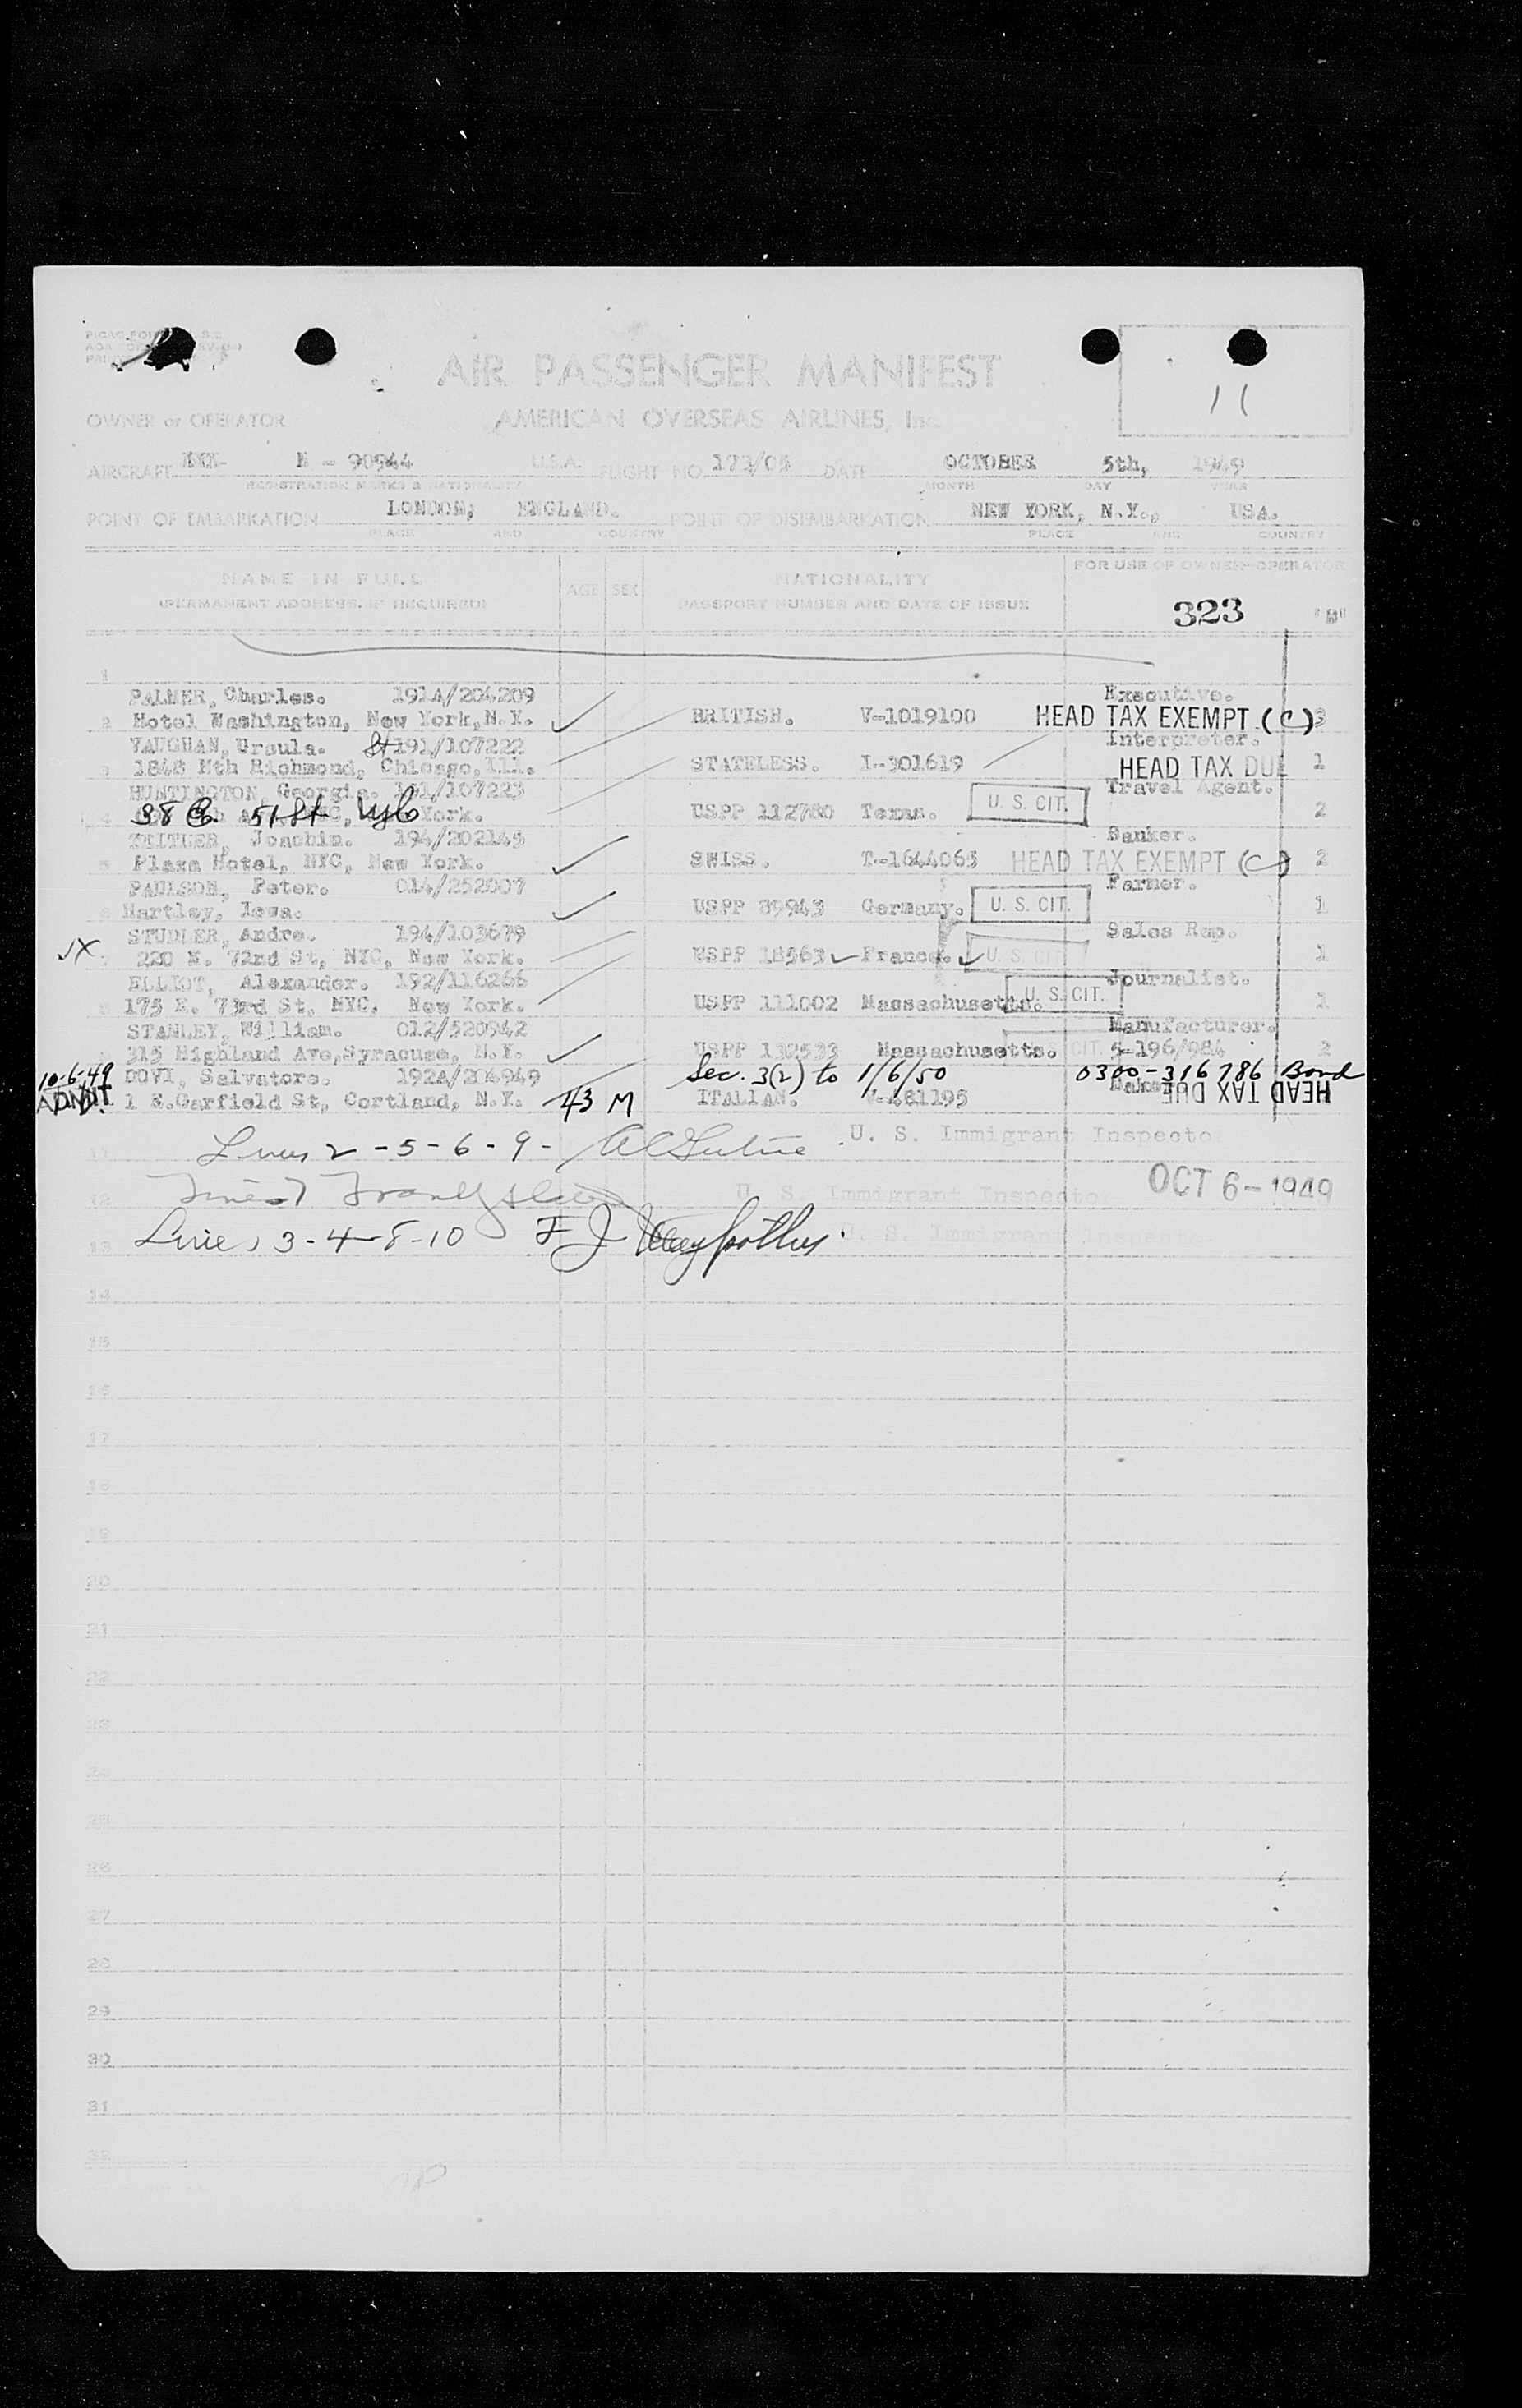 AIR PASSENGER MANIFEST
OWNER or OPERATOR AMERICAN OVERSEAS AIRLINES, Inc
AIRCRAFT N - 90944 U.S.A. FLIGHT NO. DATE OCTOBER 5th, 1949
REGISTRATION MARKS & NATIONALITY MONTH DAY YEAR
POINT OF EMBARKATION LONDON, ENGLAND. POINT OF DISEMBARKATION NEW YORK, N.Y., USA.
PLACE AND COUNTRY PLACE AND COUNTRY
NAME IN FULL AGE SEX NATIONALITY FOR USE OF OWNER-OPERATOR
(PERMANENT ADDRESS, IF REQUIRED) PASSPORT NUMBER AND DATE OF ISSUE 323 "B"
11
1
PALMER, Charles. 191A/204209 Executive.
2 Hotel Washington, New York, N.Y. BRITISH. V-1019100 HEAD TAX EXEMPT (C) 3
VAUGHAN, Ursula. 191/107222 Interpreter.
3 1848 Nth Richmond, Chicago, Ill. STATELESS. I-301619 HEAD TAX DUE 1
HUNTINGTON, Georgia. 191/107223 Travel Agent.
4 38 E. 51 St York. USPP 112780 Texas. U. S. CIT. 2
Joachim. 194/202145 Banker.
5 Plaza Hotel, NYC, New York. SWISS. T-1644065 HEAD TAX EXEMPT (C) 2
PAULSON, Peter. 014/252007 Farmer.
6 Hartley, Iowa. USPP 89943 Germany. U. S. CIT. 1
STUDLER, Andre. 194/103679 Sales Rep.
7 220 E. 72nd St, NYC, New York. USPP 18563 France. U. S. CIT 1
ELLIOT, Alexander. 192/116266 Journalist.
8 175 E. 73rd St, NYC, New York. USPP 111002 Massachusetts. U. S. CIT. 1
STANLEY, William. 012/520942 Manufacturer.
315 Highland Ave, Syracuse, N.Y. USPP 132533 Massachusetts. CIT. 5-196/984 2
10-6-49 DOVI, Salvatore. 192A/204949 Sec. 3(2) to 1/6/50 0300-316786 Bond
ADMIT 1 E.Garfield St, Cortland, N.Y. 43 M ITALIAN. V-481195 HEAD TAX DUE
11 Lines 2-5-6-9- U. S. Immigrant Inspector
12 U. S. Immigrant Inspector OCT 6-1949
13 Lines 3-4-8-10 U. S. Immigrant Inspector
14
15
16
17
18
19
20
21
22
23
24
25
26
27
28
29
30
31
32